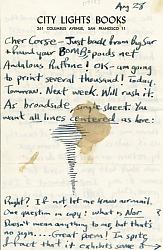 Aug 28
CITY LIGHTS BOOKS
261 COLUMBUS AVENUE, SAN FRANCISCO 11
Cher Corso — Just back from Big Sur
& found your BOMB = pou ds net
Andalous Rallone! OK — am going
to print several thousand! Today.
Tomorrow. Next week. Will rush it.
As broadside, single sheet. You
want all lines centered, as here:
Right? If not let me know airmail.
One question in copy: what is
Doesn't mean anything to me, but that's
no sign.... Great poem! In spite
of fact that it exhibits some